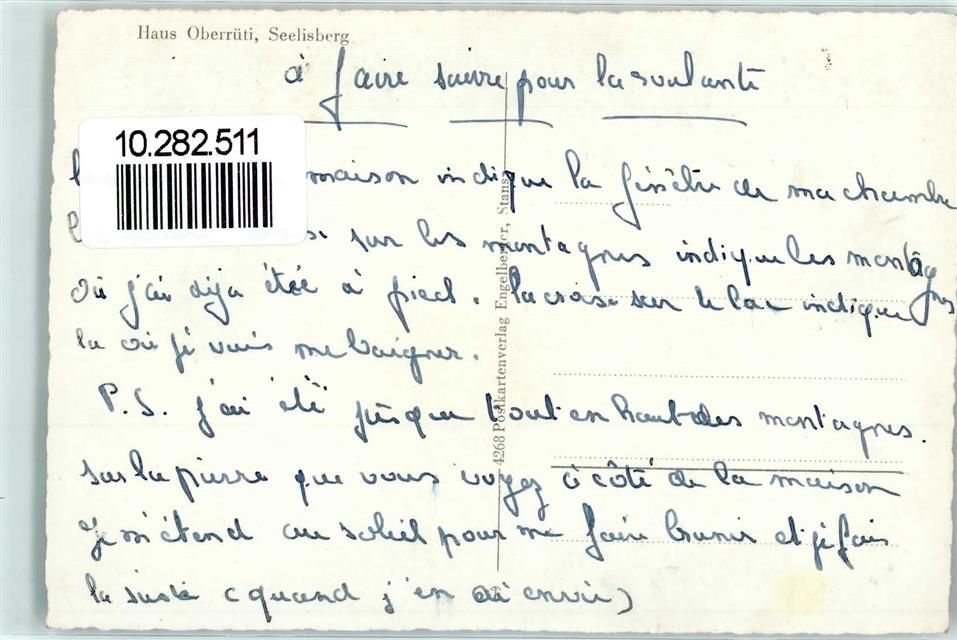 Haus Oberrüti, Seelisberg
à faire suivre pour la soulante
10.282.511
maison indique la fenêtre de ma chambre
sur les montagnes indique les montagnes
où j'ai déja étée à pied. la croise sur le lac indique
la où je vais me baigner.
P.S. j'ai été jusque tout en haut des montagnes.
sur la pierre que vous voyez à côté de la maison
Je m'étend au soleil pour me faire brunir et je fais
la sieste (quand j'en ai envie)
4268 Postkartenverlag Engelberger, Stans